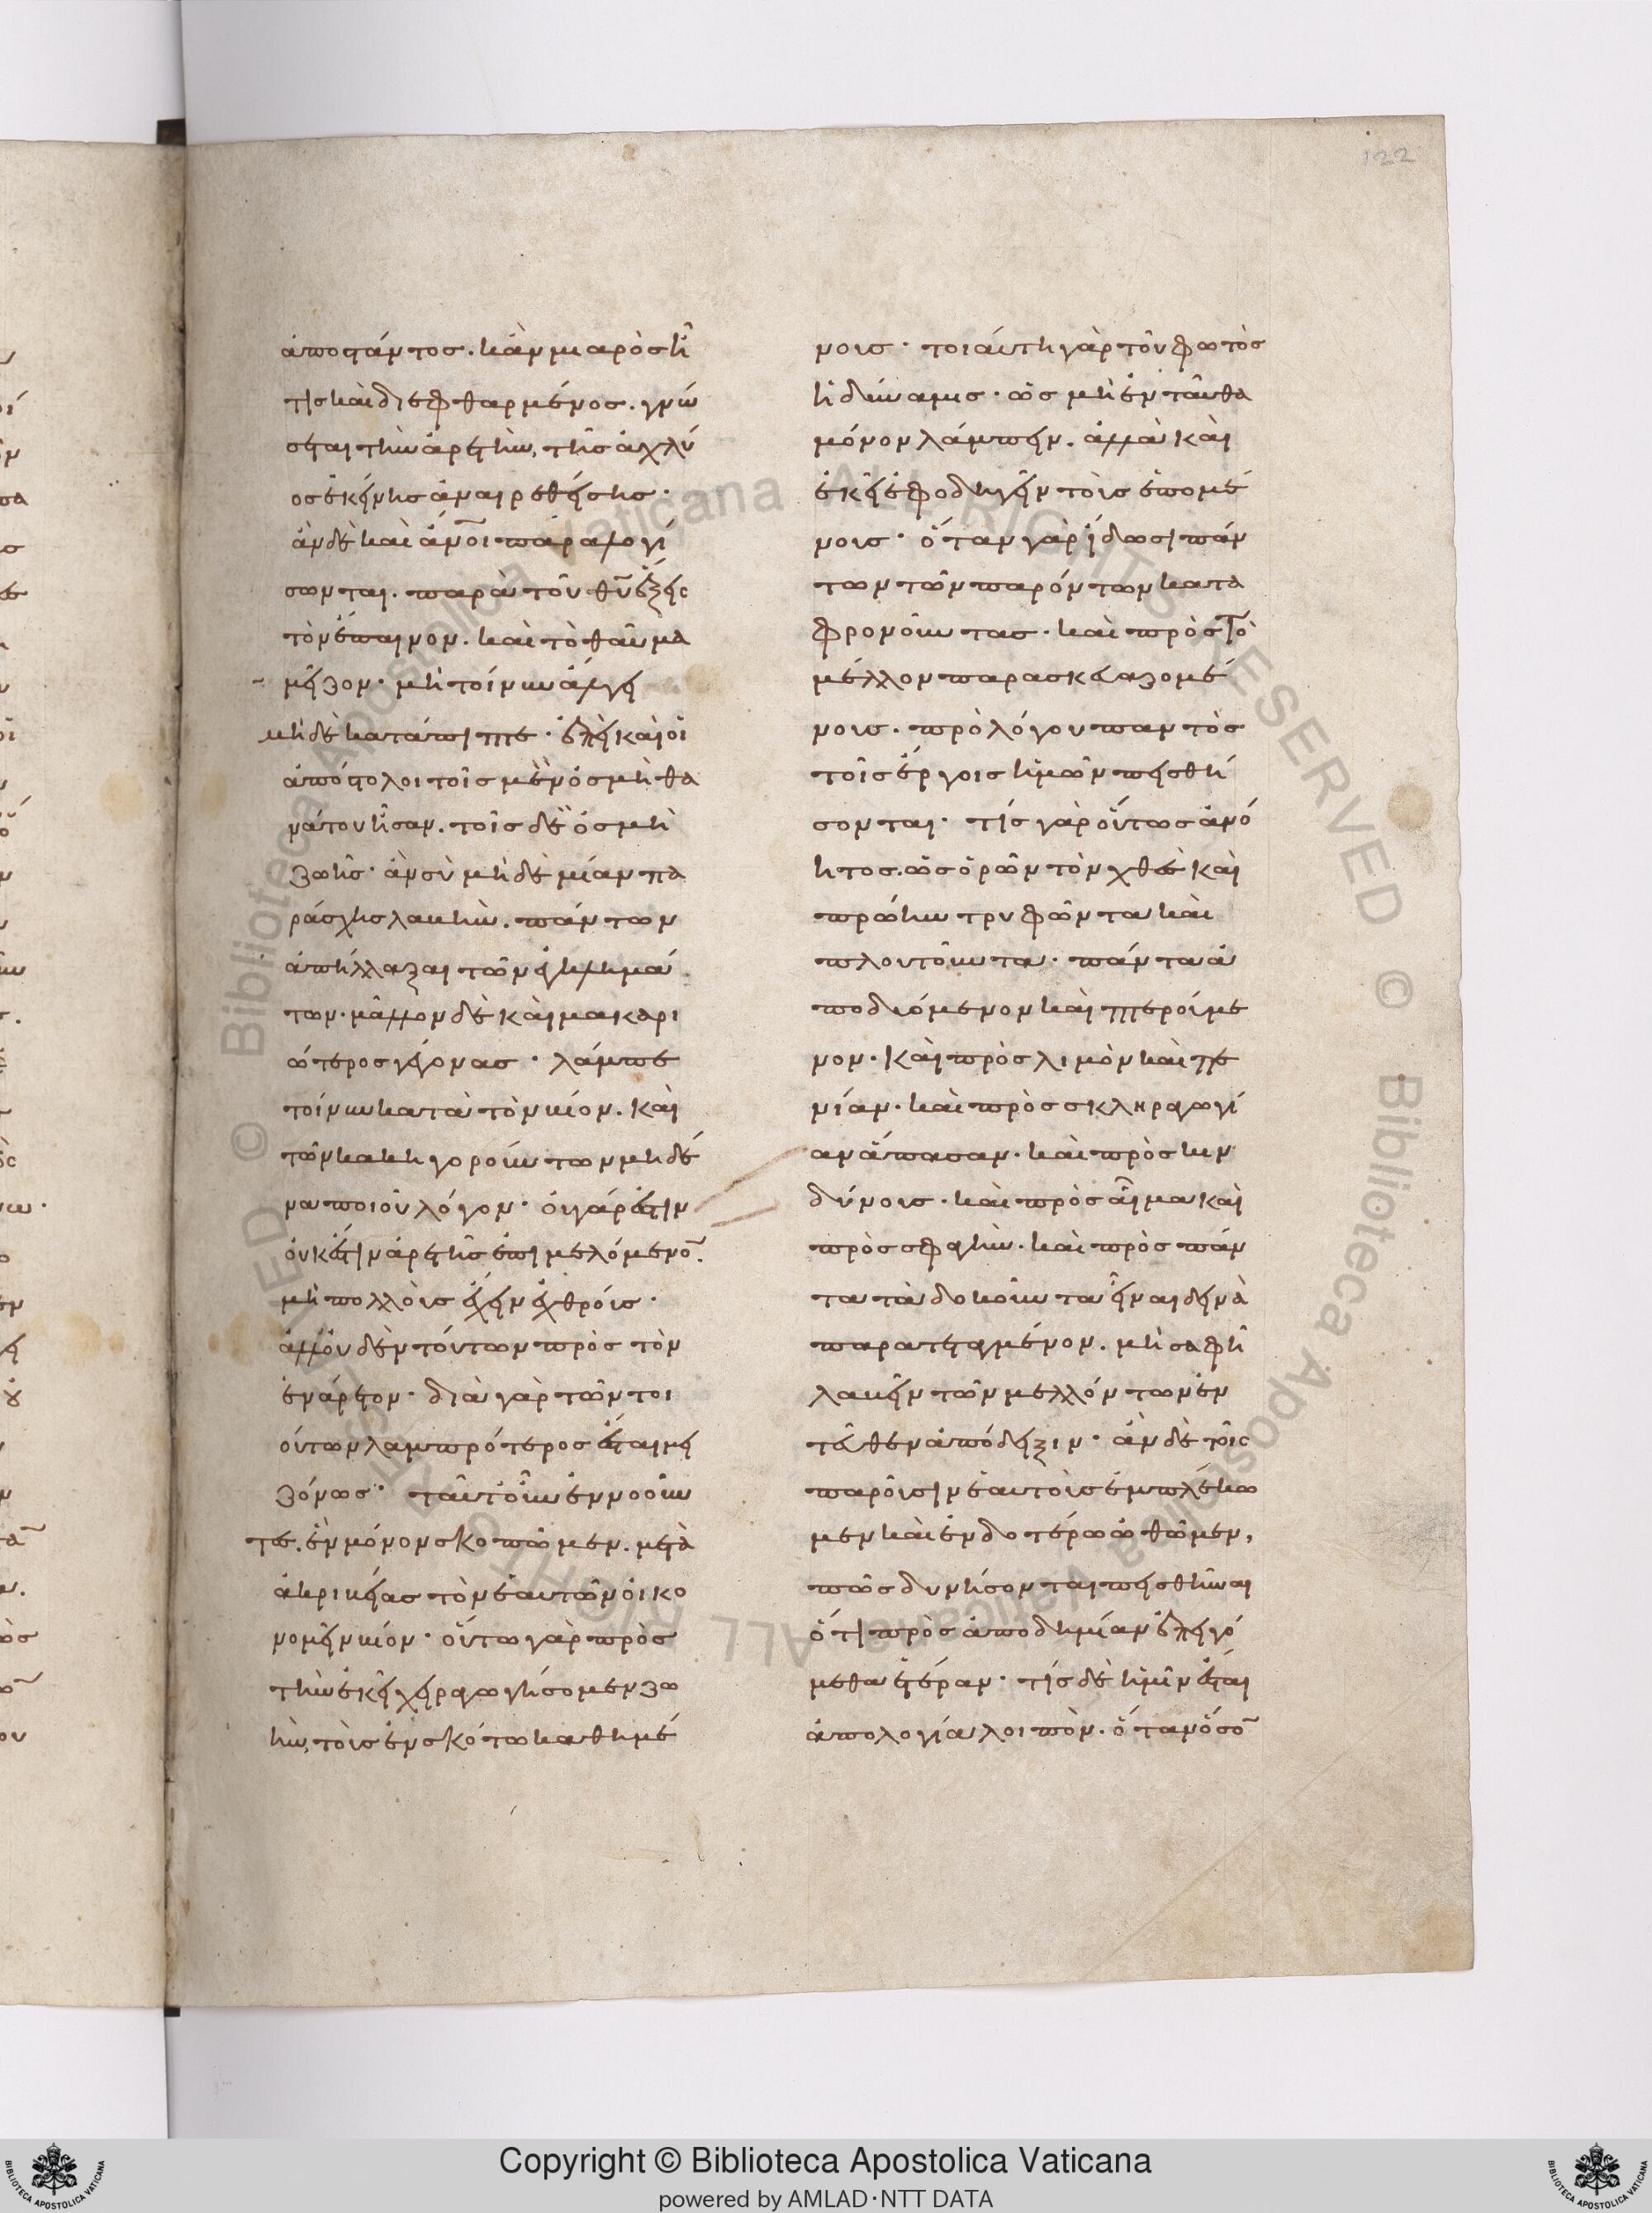 122
ἀποστάντος. κἂν μιαρὸς ἦ
τίς καὶ διεφθαρμένος. γνώ
σεται τὴν ἀρετὴν, τῆς ἀχλύ
ος ἐκείνης ἀναιρεθείσης·
ἂν δὲ καὶ ἄνοι παραλογί
σωνται. παρὰ τοῦ θυ ἕξεις
τὸν ἔπαινον. καὶ τὸ θαῦμα
μεῖζον· μὴ τοίνυν ἄλγει
μὴ δὲ κατάπιπτε· ἐπεὶ καὶ οἱ
ἀπόστολοι τοῖς μὲν ὀσμὴ θα
νάτου ἦσαν. τοῖς δὲ ὀσμὴ
ζωῆς· ἂν σὺ μὴ δὲ μίαν πα
ράσχης λαβὴν. πάντων
ἀπήλλαξαι τῶν ἐγκλημά
των. μᾶλλον δὲ καὶ μακαρι
ώτερος γέγονας· λάμπε
τοίνυν κατὰ τὸν βίον. καὶ
τῶν κακηγορούντων μηδέ
να ποιοῦ λόγον· οὐ γάρ ἐστιν
οὐκ ἔστιν ἀρετῆς ἐπιμελόμενον.
μὴ πολλοὺς ἔχειν ἐχθρούς·
ἀλλ' οὐδὲν τούτων πρὸς τὸν
ἐνάρετον· διὰ γὰρ τῶν τοι
ούτων λαμπρότερος ἔσται μει
ζόνως· ταῦτ' οὖν ἐννοοῦν
τες. ἓν μόνον σκοπῶμεν. μετὰ
ἀκριβείας τὸν ἑαυτῶν οἰκο
νομεῖν βίον· οὕτω γὰρ πρὸς
τὴν ἐκεῖ χειραγωγήσομεν ζω
ὴν, τοὺς ἐν σκότω καθημέ
νους· τοιαύτη γὰρ τοῦ φωτὸς
ἡ δύναμις· ὡς μὴ ἐνταῦθα
μόνον λάμπειν. ἀλλὰ καὶ
ἐκεῖ ἐφοδηγεῖν τοὺς ἑπομέ
νους· ὅταν γὰρ ἴδωσι πάν
των τῶν παρόντων κατα
φρονοῦντας. καὶ πρὸς τὸ
μέλλον παρασκευαζομέ
νους. πρὸ λόγου παντὸς
τοῖς ἔργοις ἡμῶν πεισθή
σονται· τίς γὰρ οὕτως ἀνό
ητος. ὡς ὁρῶν τὸν χθὲς καὶ
πρώην τρυφῶντα καὶ
πλουτοῦντα. πάντα ἀ
ποδυόμενον καὶ πτερούμε
νον. καὶ πρὸς λιμὸν καὶ πε
νίαν. καὶ πρὸς σκληραγωγί
αν ἅπασαν. καὶ πρὸς κιν
δύνους. καὶ πρὸς αἷμα καὶ
πρὸς σφαγὴν. καὶ πρὸς πάν
τα τὰ δοκοῦντα εἶναι δεινὰ
παρατεταγμένον. μὴ σαφῆ
λαβεῖν τῶν μελλόντων ἐν
τεῦθεν ἀπόδειξιν· ἂν δὲ τοῖς
παροῦσιν ἑαυτοὺς ἐμπλέκω
μεν καὶ ἐνδοτέρω ὠθῶμεν,
πῶς δυνήσονται πεισθῆναι
ὅτι πρὸς ἀποδημίαν ἐπειγό
μεθα ἑτέραν· τίς δὲ ἡμῖν ἔσται
ἀπολογία λοιπὸν. ὅταν ὅσον
Copyright © Biblioteca Apostolica Vaticana
powered by AMLAD·NTT DATA